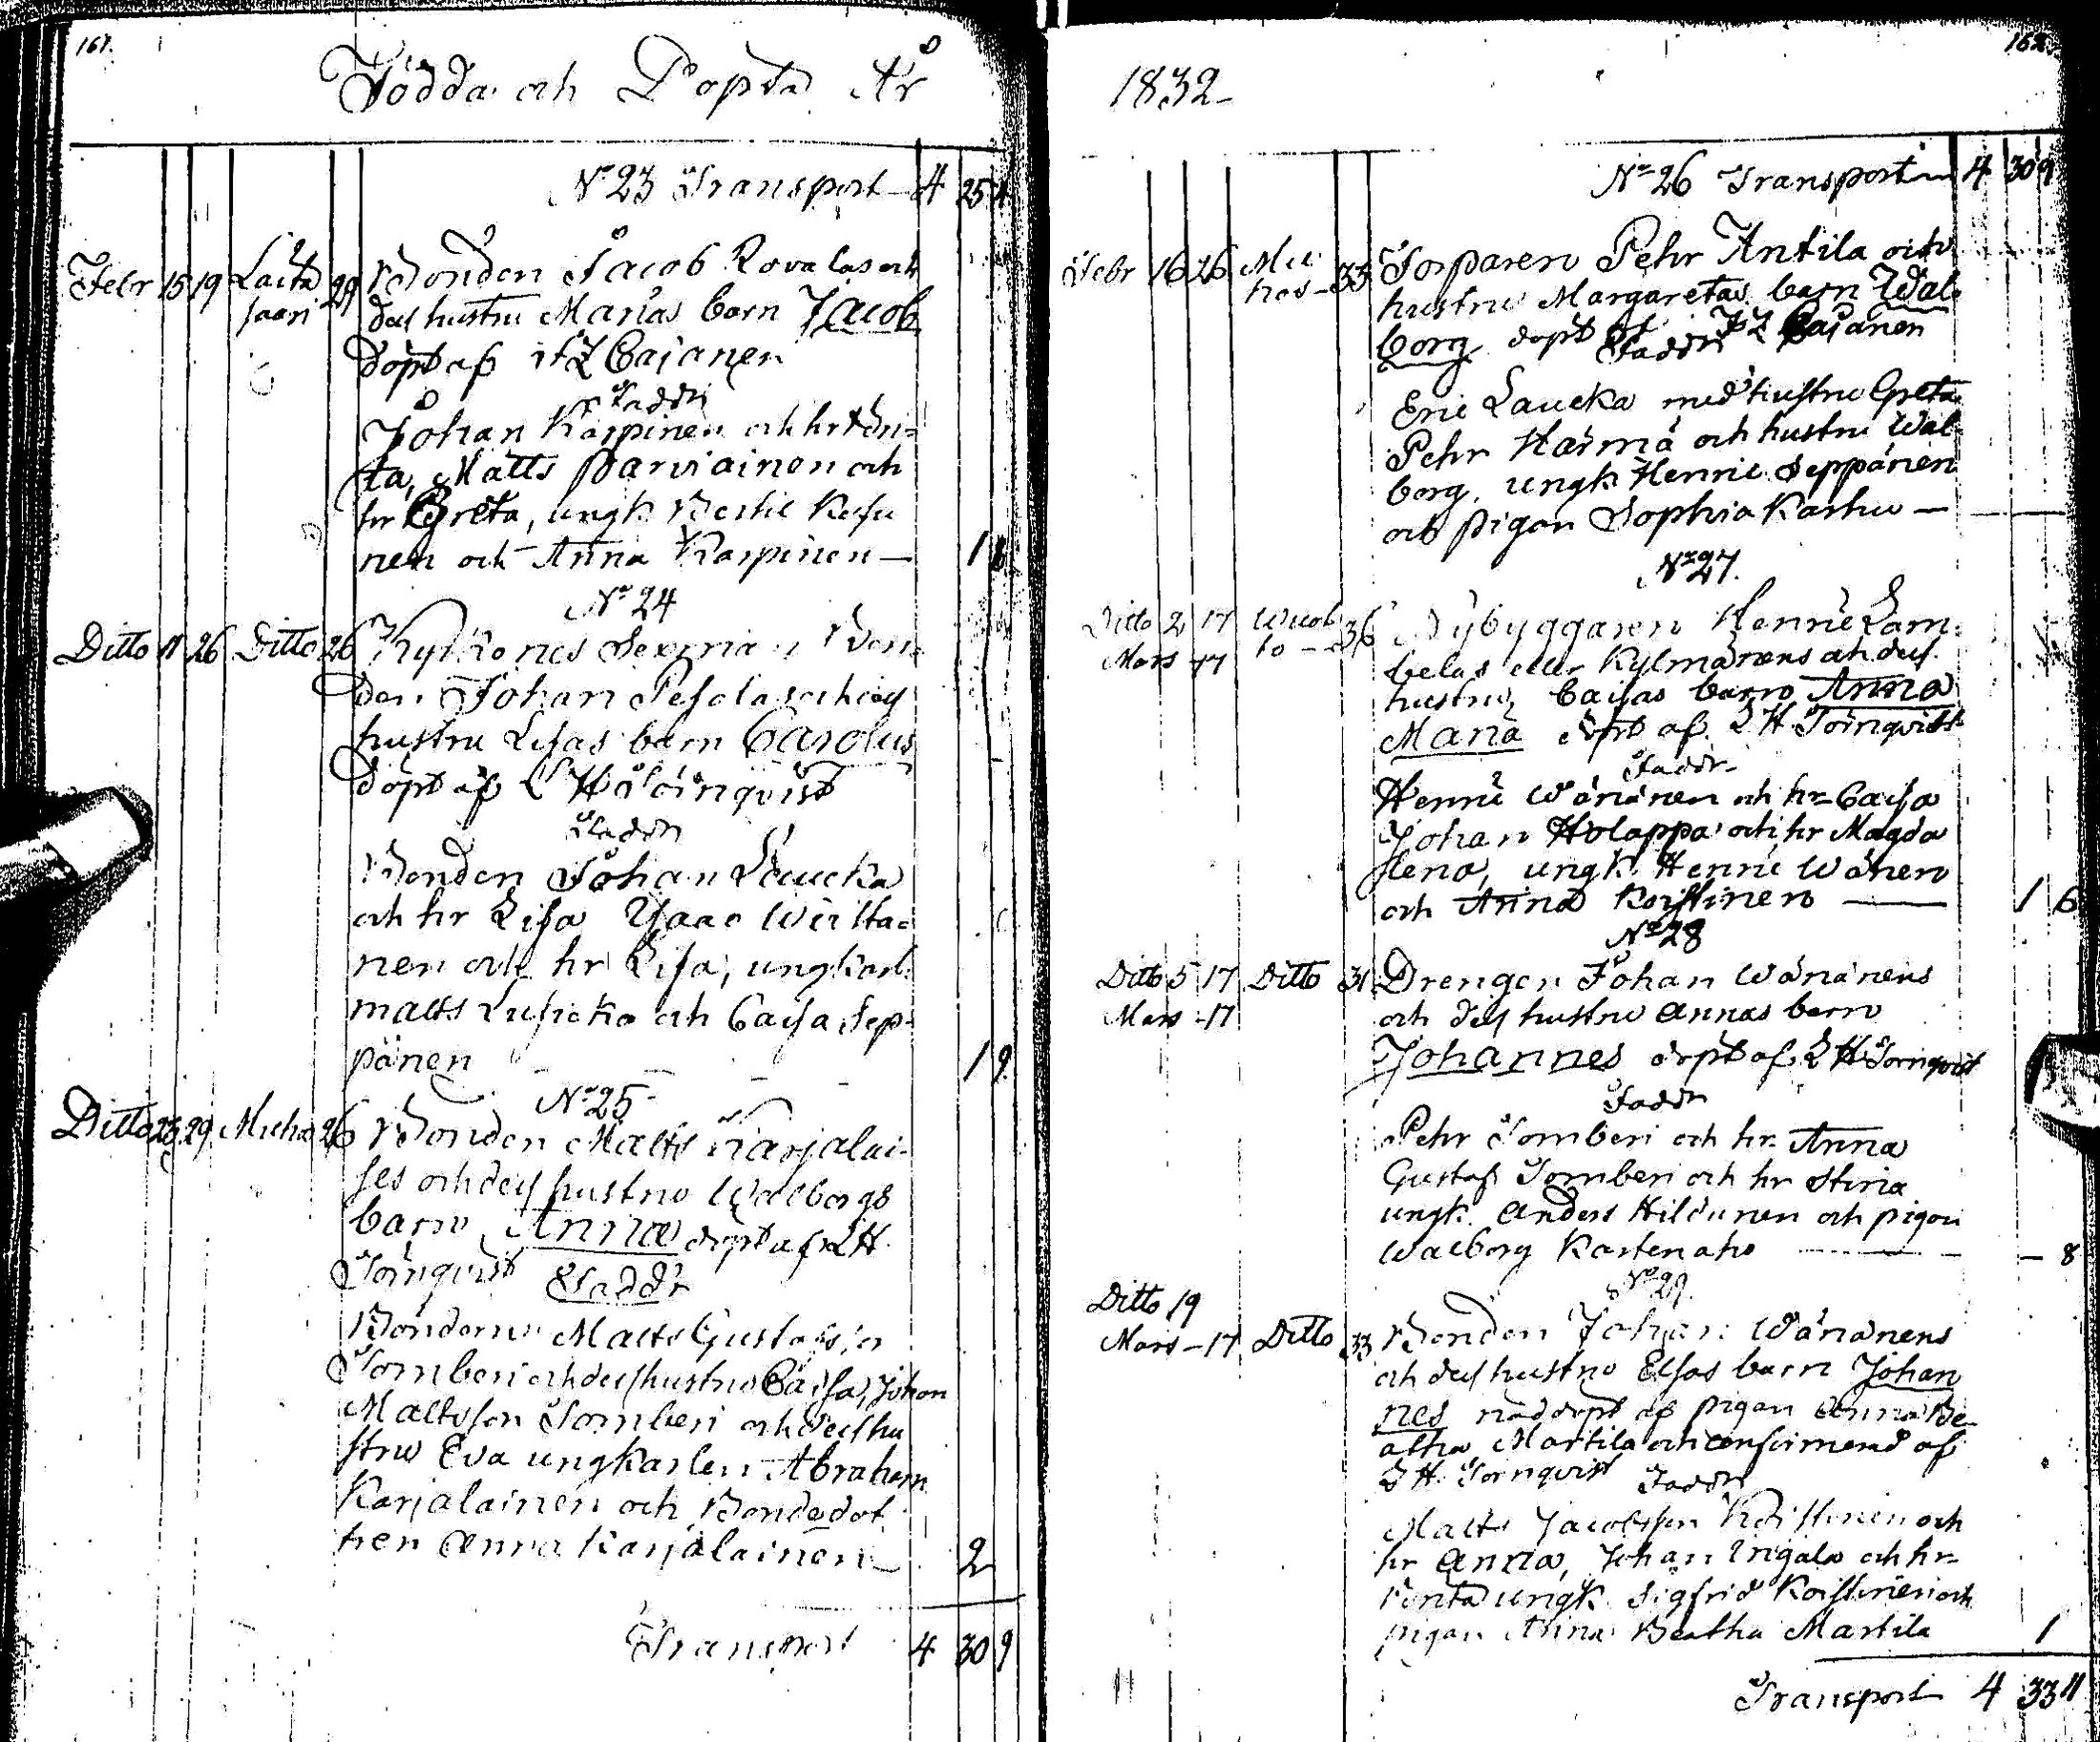 161.
Födda och Döpta År
No 23 Transport 4 25 4
Febr 15 19 Laita 29 Bonden Jacob Rovalas och
saari dess hustru Marias barn Jacob
döpt af Cajanen
Faddr
Johan Karpinen och hr Von
ta, Matts Parviainen och
hr Greta, ungk
nen och Anna Karpinen
1
No 24
Ditto 11 26 Ditto 26 Kylkones Bon
den Johan Pesolas och dess
hustru Lisas barn Carolus
döpt af L H Törnqvist
Faddr
Bonden Johan Laucka
och hr Lisa Isaac
nen och hr Lisa, ungkarl
Matts och Caisa Sep
pänen 1 9
No 25
Ditto 23 29 Muho 26 Bonden Matts Karjalai
ses och dess hustru Walborgs
barn Anna döpt af L H
Törnqvist Faddr
Bönderne Matts Gustafss:n
Tomberi och dess hustru Caisa, Johan
Mattsson Tomberi och dess hu
stru Eva ungkarlen Abraham
Karjalainen och Bondedot
tren Anna Karjalainen 2
Transport 4 30 9
162.
1832
No 26 Transport 4 30 9
Febr 16 26 Mu 33 Torparen Pehr Antila och
hos hustru Margaretas barn Wal
borg döpt af Cajanen
Faddr
Eric Laucka med hustru Greta
Pehr Härmä och hustru Wal
borg, ungk Henric Seppänen
och pigan Sophia Karhu
No 27.
Ditto 2 17 36 Nybyggaren Henric Lam
Mars 17 belas eller Kylmänens och dess
hustru Caisas barn Anna
Maria döpt af L H Törnqvist
Faddr
Henric Wänänen och hr Caisa
Johan Holappa och hr Magda
lena, ungk. Henric Wänen
och Anna Koistinen 1 6
No 28
Ditto 5 17 Ditto 31 Drengen Johan Wänänens
Mars 17 och dess hustru Annas barn
Johannes döpt af L H Törnqvist
Faddr
Pehr Tomberi och hr Anna
Gustaf Tomberi och hr Stina
ungk. Anders Hildunen och pigan
Walborg Kortenaho 8
No 29.
Ditto 19
Mars 17 Ditto 33 Bonden Johan Wänänens
och dess hustru Elsas barn Johan
nes nöddöpt af pigan Anna Be
atha Martila och confirmerad af
L H. Törnqvist Faddr
Matts Jacobsson Koistinen och
hr Anna, Johan och hr
ungk. Sigfrid Koistinen och
pigan Anna Beatha Martila 1
Transport 4 33 11